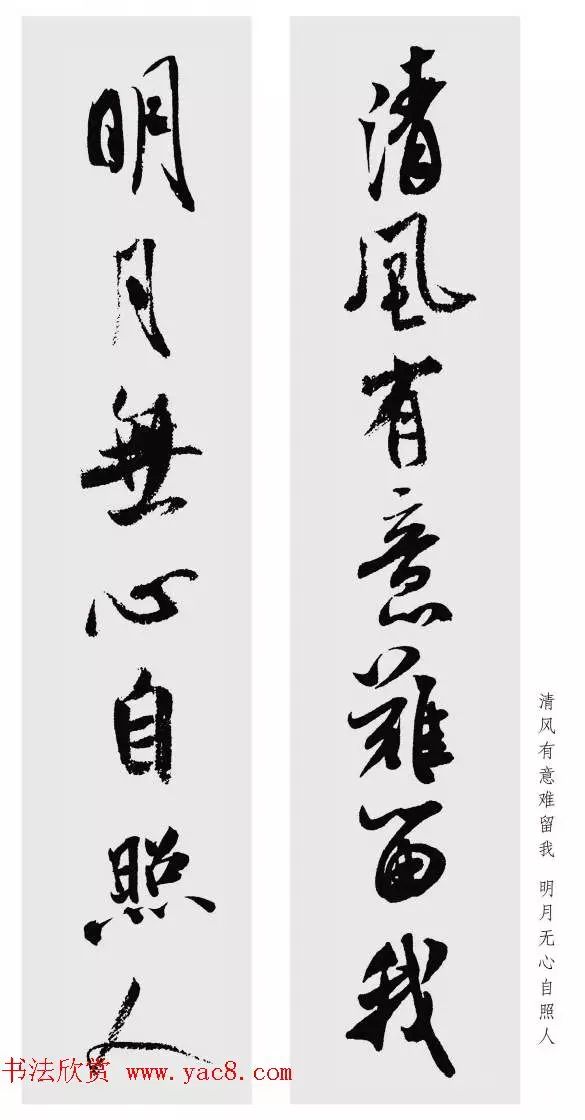 清風有意難留我
明月無心自照人
清风有意难留我 明月无心自照人
书法欣赏 www.yac8.com